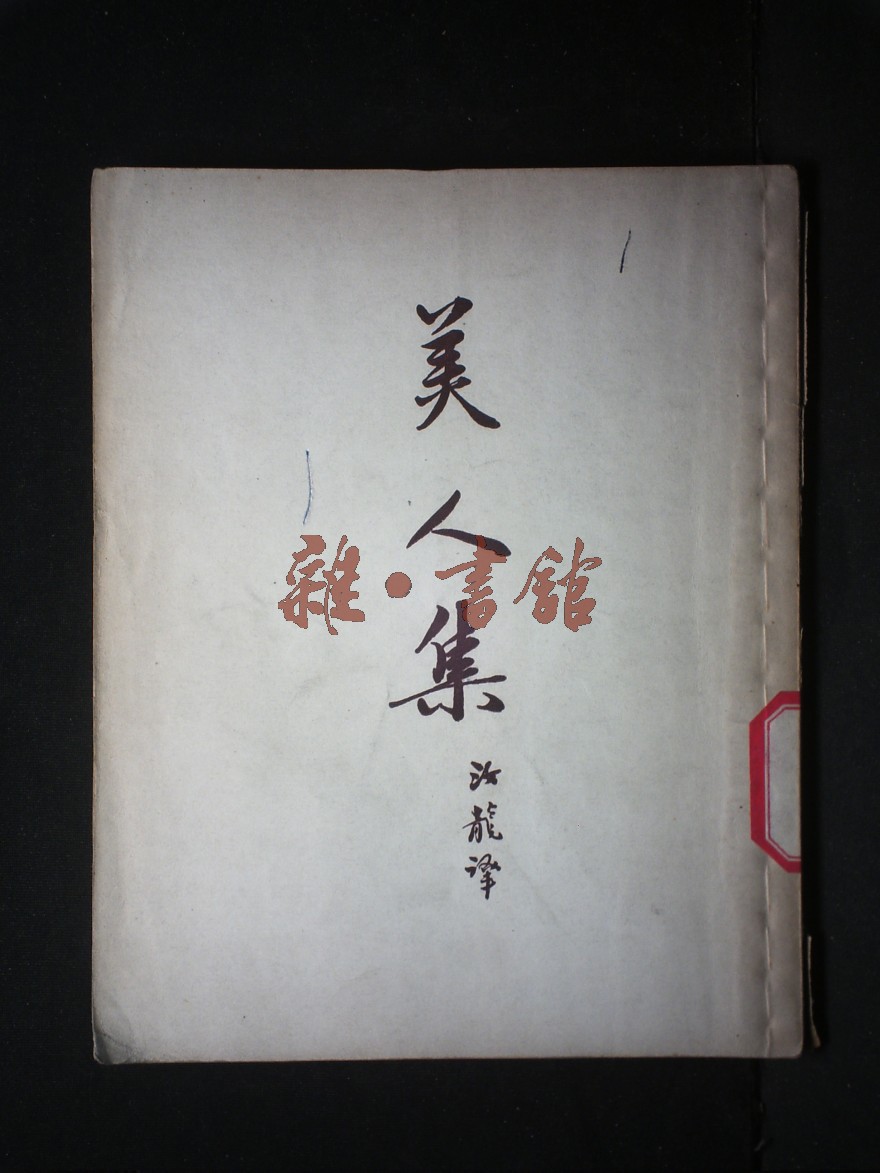 美人集
雜·書館
汝龍譯